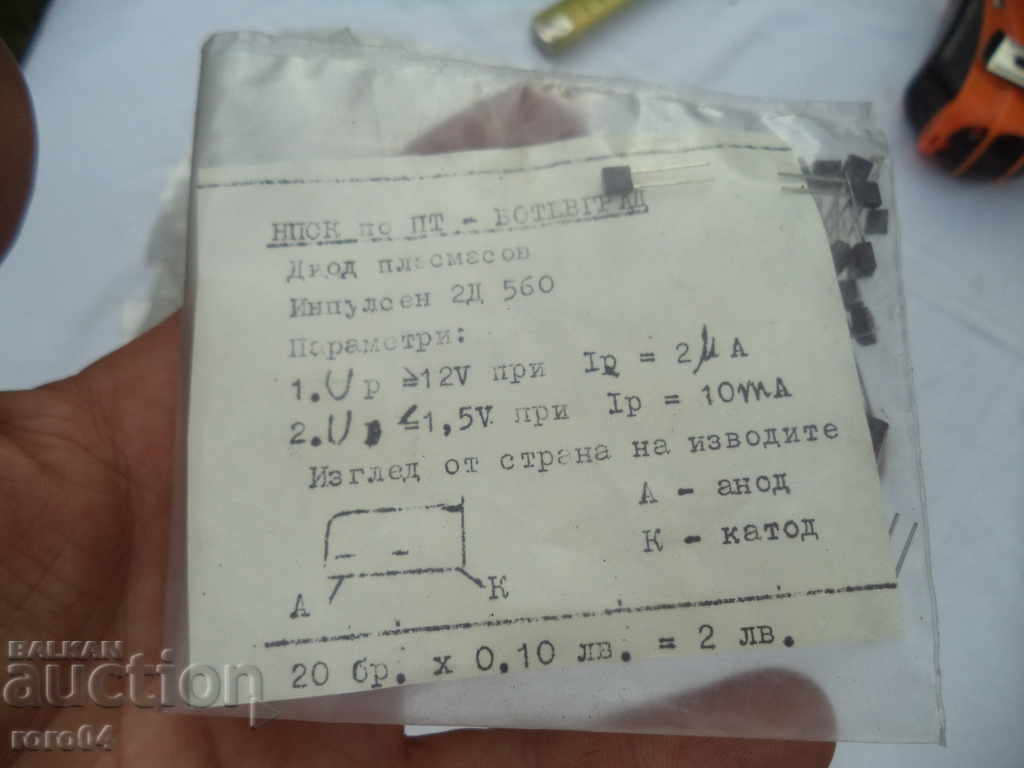 НПСК по ПТ - БОТЕВГРАД
Диод пласмасов
Инпулсен 2Д 560
Параметри:
1. U р ≥12V при Iр = 2μA
2. U ≤1,5V при Iр = 10mA
Изглед от страна на изводите
А - анод
К - катод
А К
20 бр. х 0.10 лв. = 2 лв.
BALKAN
auction
roro04